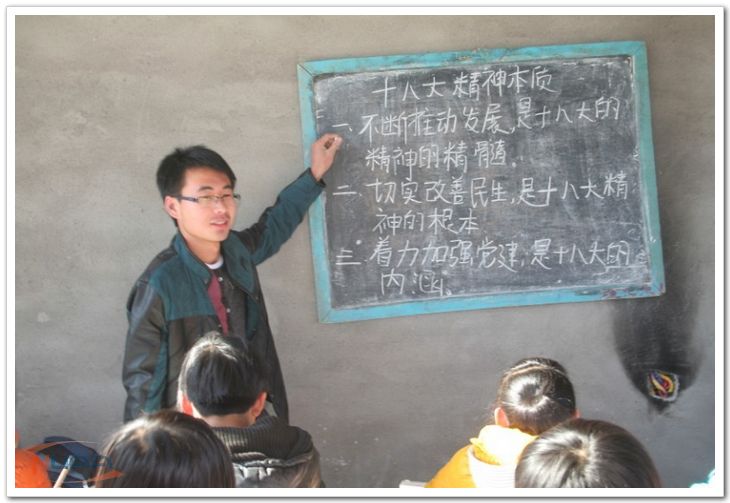 十八大精神本质
一、不断推动发展,是十八大的
精神的精髓.
二、切实改善民生,是十八大精
神的根本
三、着力加强党建,是十八大的
内涵.